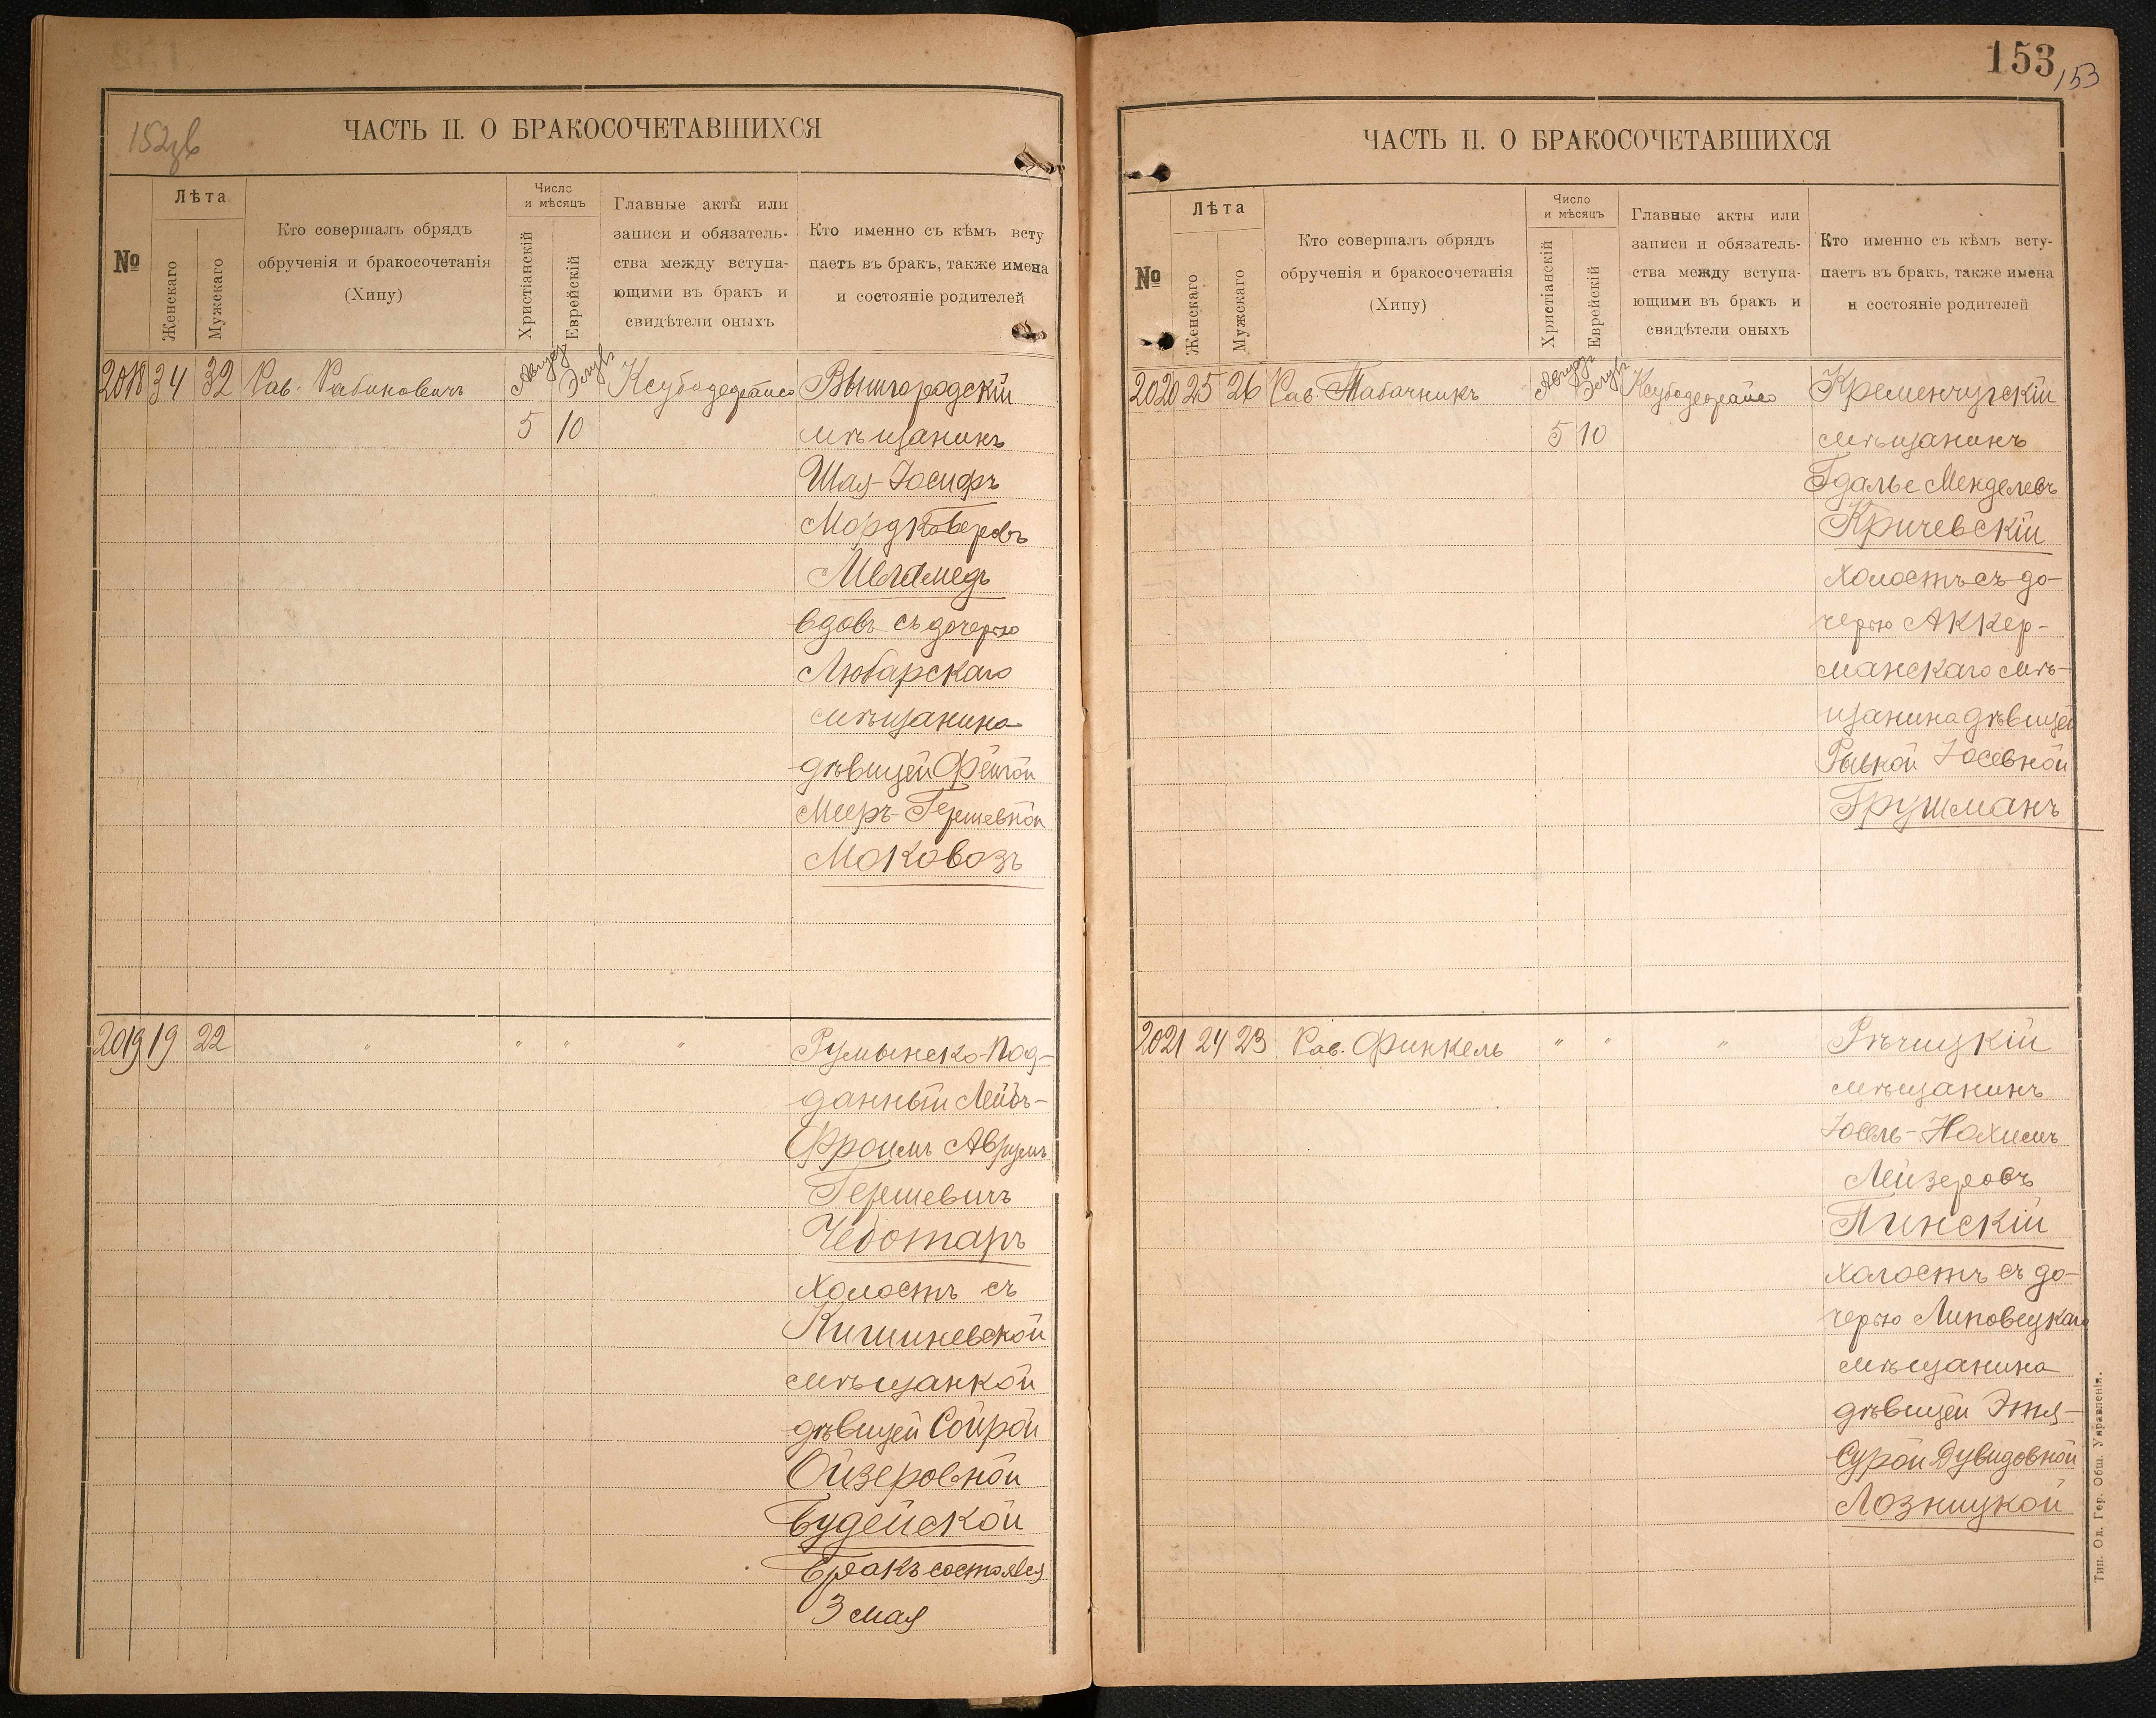 152об
ЧАСТЬ II. О БРАКОСОЧЕТАВШИХСЯ
№
Лѣта
Женскаго
Мужскаго
Кто совершалъ обрядъ
обрученія и бракосочетанія
(Хипу)
Число
и мѣсяцъ
Христіанскій
Еврейскій
Главные акты или
записи и обязатель-
ства между вступа-
ющими въ бракъ и
свидѣтели оныхъ
Кто именно съ кѣмъ всту
паетъ въ бракъ, также имена
и состояніе родителей
2018 34 32 Рав. Рабиновичъ Август Элулъ Ксубодедрайсо Вышгородскій
5 10 мѣщанинъ
Шая-Іосифъ
Мордкоберовъ
Меламедъ
вдовъ съ дочерью
Любарскаго
мѣщанина
дѣвицей Фейгой
Мееръ-Гершевной
Моковозъ
2019 19 22 " " " " Румынско-Под-
данный Лейбъ-
Фроимъ Аврумъ
Гершевичъ
Чеботаръ
холостъ съ
Кишиневской
мѣщанкой
дѣвицей Сойрой
Ойзеровной
Будейской
Бракъ состоялся
3 мая
153
153
ЧАСТЬ II. О БРАКОСОЧЕТАВШИХСЯ
№
Лѣта
Женскаго
Мужскаго
Кто совершалъ обрядъ
обрученія и бракосочетанія
(Хипу)
Число
и мѣсяцъ
Христіанскій
Еврейскій
Главные акты или
записи и обязатель-
ства между вступа-
ющими въ бракъ и
свидѣтели оныхъ
Кто именно съ кѣмъ всту-
паетъ въ бракъ, также имена
и состояніе родителей
2020 25 26 Рав. Табачникъ Августъ Элулъ Ксубодедрайсо Кременчугскій
5 10 мѣщанинъ
Гдалье Менделевъ
Кричевскій
холостъ съ до-
черью Аккер-
манскаго мѣ-
щанина дѣвицей
Рывкой Іосевной
Грушманъ
2021 24 23 Рав. Финкель " " " Рѣчицкій
мѣщанинъ
Іосель-Нохимъ
Лейзеровъ
Пинскій
холостъ съ до-
черью Липовецкаго
мѣщанина
дѣвицей Этя-
Сурой Дувидовной
Лозницкой
Тип. Од. Гор. Общ. Управленія.